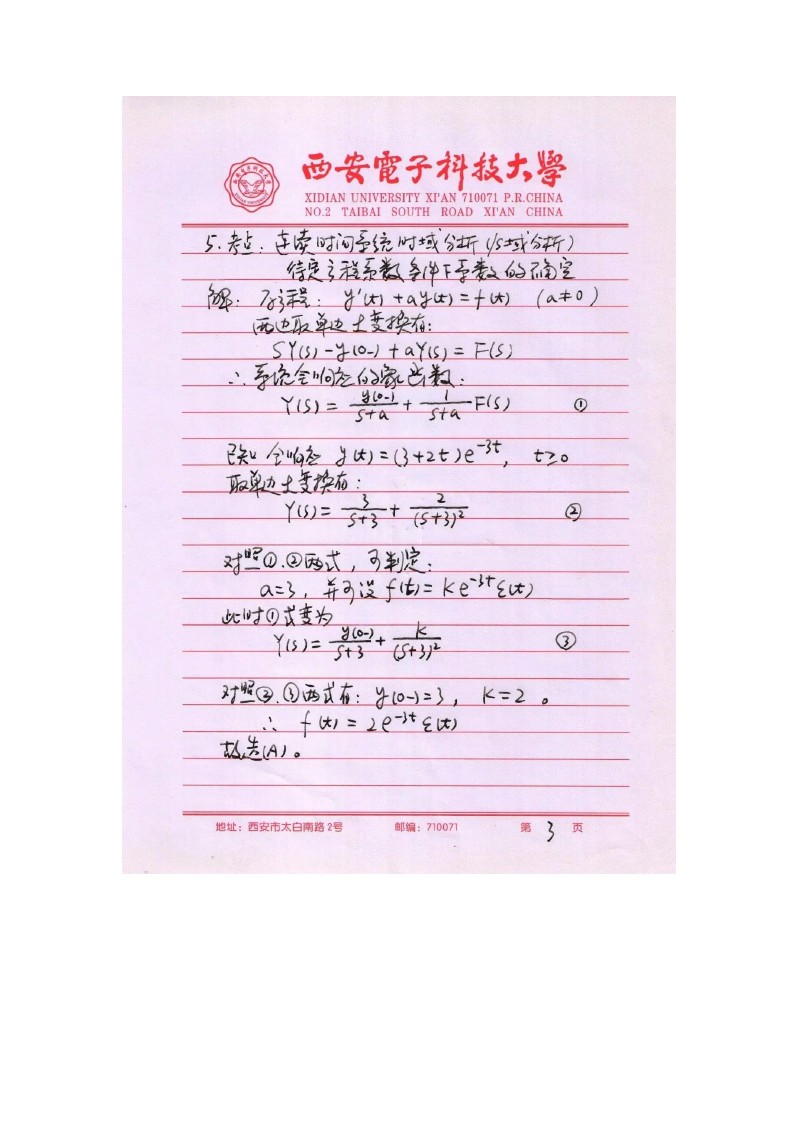 西安電子科技大學
XIDIAN UNIVERSITY XI'AN 710071 P.R.CHINA
NO.2 TAIBAI SOUTH ROAD XI'AN CHINA
5. 考点: 连续时间系统时域分析 (/S域分析)
待定方程系数条件下系数的确定
解: 方程: y'(t) + ay(t) = f(t) (a≠0)
两边取单边L变换有:
SY(s) - y(0-) + aY(s) = F(s)
∴ 系统全响应的象函数:
Y(s) = y(0-)/(s+a) + 1/(s+a) F(s) ①
已知 全响应 y(t) = (3+2t)e^{-3t}, t≥0
取单边L变换有:
Y(s) = 3/(s+3) + 2/(s+3)² ②
对照①、②两式, 可判定:
a=3, 并可设 f(t) = Ke^{-3t}ε(t)
此时①式变为
Y(s) = y(0-)/(s+3) + K/(s+3)² ③
对照②、③两式有: y(0-)=3, K=2 。
∴ f(t) = 2e^{-3t}ε(t)
故选(A)。
地址: 西安市太白南路2号 邮编: 710071 第 3 页